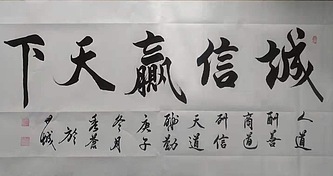 诚信赢天下
人道
酬善
商道
酬信
天道
酬勤
庚子
冬月
於